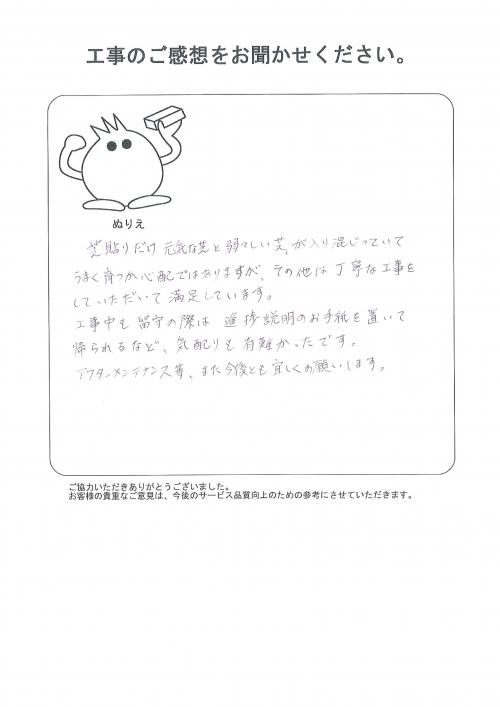 工事のご感想をお聞かせください。
ぬりえ
芝貼りだけ 元気な芝と弱々しい芝が入り混じっていて
うまく育つか心配ではありますが、その他は丁寧な工事を
していただいて満足しています。
工事中も留守の際は 進捗説明のお手紙を置いて
帰られるなど、気配りも有難かったです。
アフターメンテナンス等、また今後とも宜しくお願いします。
ご協力いただきありがとうございました。
お客様の貴重なご意見は、今後のサービス品質向上のための参考にさせていただきます。